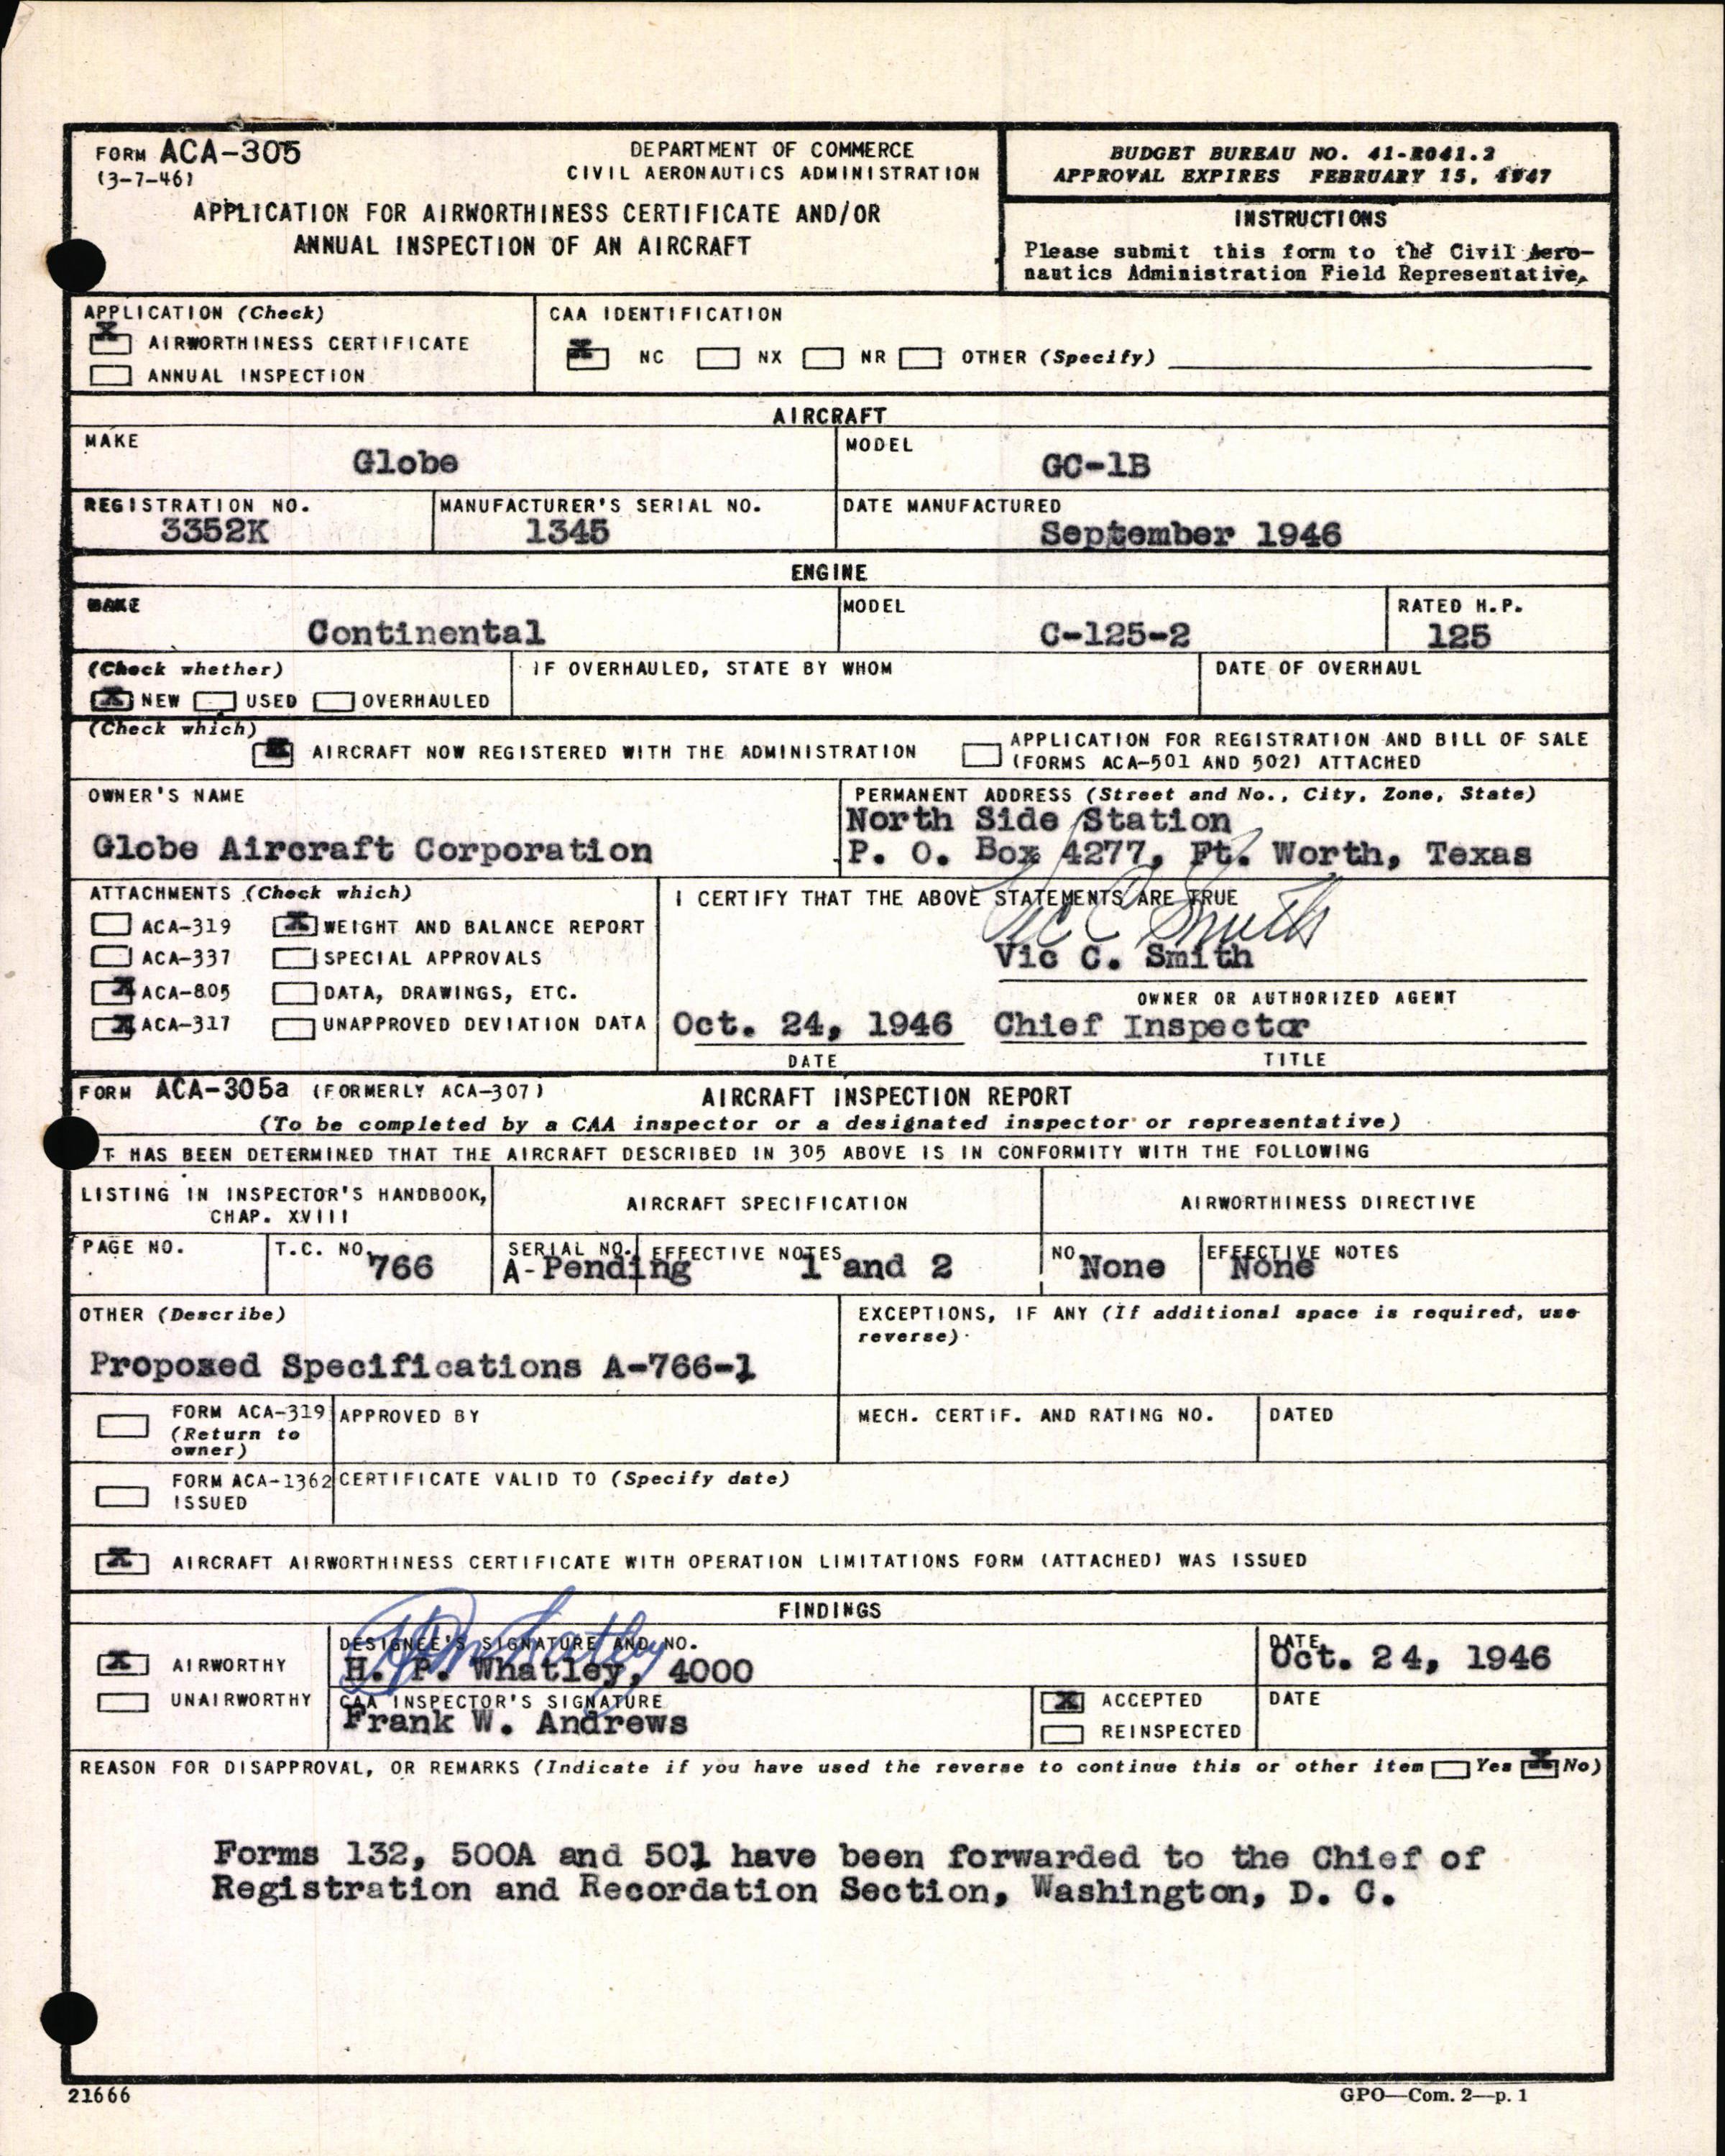 FORM ACA-305
(3-7-46)
DEPARTMENT OF COMMERCE
CIVIL AERONAUTICS ADMINISTRATION
APPLICATION FOR AIRWORTHINESS CERTIFICATE AND/OR
ANNUAL INSPECTION OF AN AIRCRAFT
BUDGET BUREAU NO. 41-R041.2
APPROVAL EXPIRES FEBRUARY 15, 1947
INSTRUCTIONS
Please submit this form to the Civil Aero-
nautics Administration Field Representative.
APPLICATION (Check)
X AIRWORTHINESS CERTIFICATE
ANNUAL INSPECTION
CAA IDENTIFICATION
X NC NX NR OTHER (Specify)
AIRCRAFT
MAKE
Globe
MODEL
GC-1B
REGISTRATION NO.
3352K
MANUFACTURER'S SERIAL NO.
1345
DATE MANUFACTURED
September 1946
ENGINE
MAKE
Continental
MODEL
C-125-2
RATED H.P.
125
(Check whether)
X NEW USED OVERHAULED
IF OVERHAULED, STATE BY WHOM
DATE OF OVERHAUL
(Check which)
X AIRCRAFT NOW REGISTERED WITH THE ADMINISTRATION
APPLICATION FOR REGISTRATION AND BILL OF SALE
(FORMS ACA-501 AND 502) ATTACHED
OWNER'S NAME
Globe Aircraft Corporation
PERMANENT ADDRESS (Street and No., City, Zone, State)
North Side Station
P. O. Box 4277, Ft. Worth, Texas
ATTACHMENTS (Check which)
ACA-319 X WEIGHT AND BALANCE REPORT
ACA-337 SPECIAL APPROVALS
X ACA-805 DATA, DRAWINGS, ETC.
X ACA-317 UNAPPROVED DEVIATION DATA
I CERTIFY THAT THE ABOVE STATEMENTS ARE TRUE
Vic C Smith
Vic C. Smith
OWNER OR AUTHORIZED AGENT
Oct. 24, 1946 Chief Inspector
DATE TITLE
FORM ACA-305a (FORMERLY ACA-307) AIRCRAFT INSPECTION REPORT
(To be completed by a CAA inspector or a designated inspector or representative)
T HAS BEEN DETERMINED THAT THE AIRCRAFT DESCRIBED IN 305 ABOVE IS IN CONFORMITY WITH THE FOLLOWING
LISTING IN INSPECTOR'S HANDBOOK,
CHAP. XVIII
AIRCRAFT SPECIFICATION
AIRWORTHINESS DIRECTIVE
PAGE NO.
T.C. NO.
766
SERIAL NO.
A-Pending
EFFECTIVE NOTES
1 and 2
NO.
None
EFFECTIVE NOTES
None
OTHER (Describe)
Proposed Specifications A-766-1
EXCEPTIONS, IF ANY (If additional space is required, use
reverse)
FORM ACA-319
(Return to
owner)
APPROVED BY
MECH. CERTIF. AND RATING NO.
DATED
FORM ACA-1362
ISSUED
CERTIFICATE VALID TO (Specify date)
X AIRCRAFT AIRWORTHINESS CERTIFICATE WITH OPERATION LIMITATIONS FORM (ATTACHED) WAS ISSUED
FINDINGS
X AIRWORTHY
UNAIRWORTHY
DESIGNEE'S SIGNATURE AND NO.
H P Whatley
H. P. Whatley, 4000
DATE
Oct. 24, 1946
CAA INSPECTOR'S SIGNATURE
Frank W. Andrews
X ACCEPTED
REINSPECTED
DATE
REASON FOR DISAPPROVAL, OR REMARKS (Indicate if you have used the reverse to continue this or other item Yes X No)
Forms 132, 500A and 501 have been forwarded to the Chief of
Registration and Recordation Section, Washington, D. C.
21666
GPO—Com. 2—p. 1